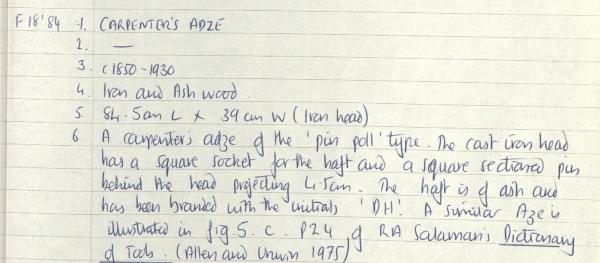 F18'84 1. CARPENTER'S ADZE
2. —
3. c1850-1930
4. Iron and Ash wood.
5. 84.5cm L x 39cm W (Iron head)
6 A carpenter's adze of the 'pin poll' type. The cast iron head
has a square socket for the haft and a square sectioned pin
behind the head projecting 4.5cm. The haft is of ash and
has been branded with the initials 'DH'. A similar Aze is
illustrated in fig.5.c. P24 of RA Salaman's Dictionary
of Tools. (Allen and Unwin 1975)